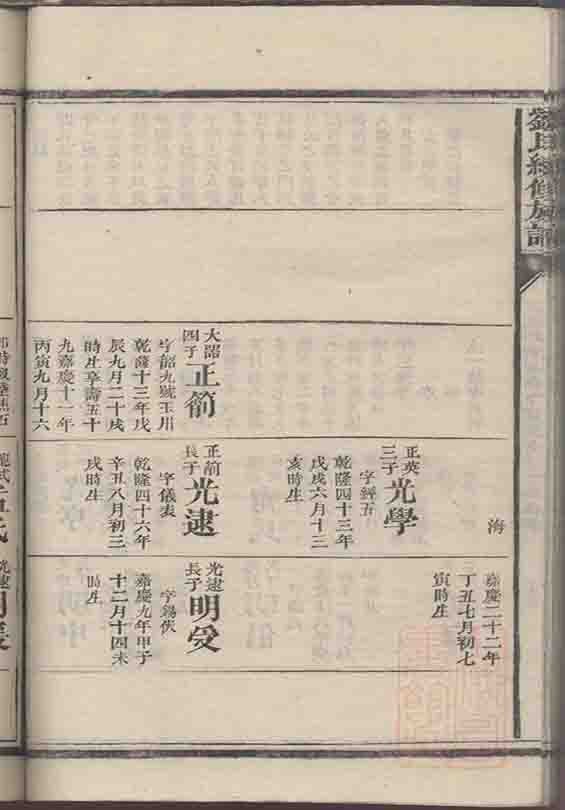 劉氏續修族譜
海
大
四子
正箾
字韶九號玉川
乾隆十三年戊
辰九月二十戌
時生享壽五十
九嘉慶十一年
丙寅九月十六
正英
三子
光學
字經五
乾隆四十三年
戊戌六月十三
亥時生
正箾
長子
光逮
字儀表
乾隆四十六年
辛丑八月初三
戌時生
嘉慶二十二年
丁丑七月初七
寅時生
光逮
長子
明受
字錫侯
嘉慶九年甲子
十二月十四未
時生